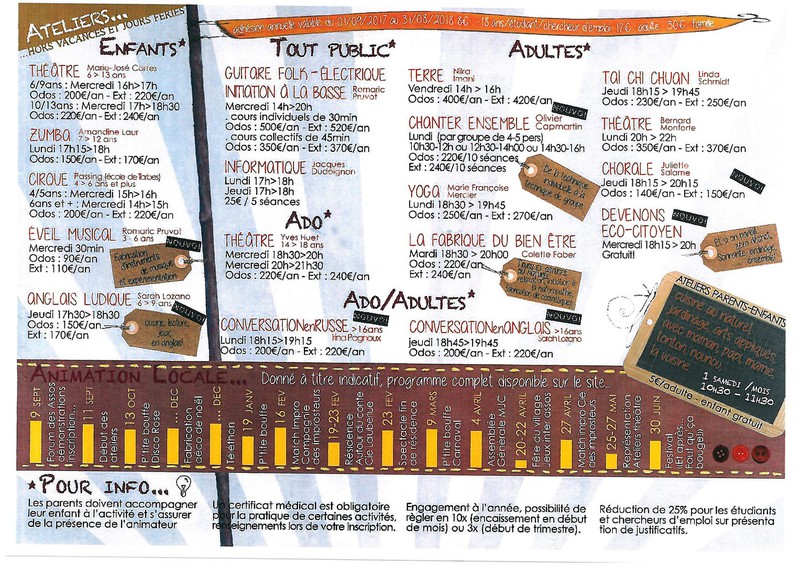 ATELIERS...
...HORS VACANCES ET JOURS FÉRIÉS
adhésion annuelle valable du 01/09/2017 au 31/08/2018 8€ - 18 ans/étudiant/chercheur d'emploi 17€ adulte 30€ famille
ENFANTS*
THÉÂTRE Marie-José Cortes
6 > 13 ans
6/9ans : Mercredi 16h>17h
Odos : 200€/an - Ext : 220€/an
10/13ans : Mercredi 17h>18h30
Odos : 220€/an - Ext : 240€/an
ZUMBA Amandine Laur
7 > 12 ans
Lundi 17h15>18h
Odos : 150€/an - Ext : 170€/an
CIRQUE Passing (école de Tarbes)
4 > 6 ans et plus
4/5ans : Mercredi 15h>16h
6ans et + : Mercredi 14h>15h
Odos : 200€/an - Ext : 220€/an
ÉVEIL MUSICAL Romaric Pruvot
3 - 6 ans
Mercredi 30min
Odos : 90€/an
Ext : 110€/an
Fabrication
d'instruments
de musique
et expérimentation
ANGLAIS LUDIQUE Sarah Lozano
6 > 9 ans
Jeudi 17h30>18h30
Odos : 150€/an
Ext : 170€/an
cuisine, lecture,
jeux,
en anglais!
TOUT PUBLIC*
GUITARE FOLK - ÉLECTRIQUE
INITIATION À LA BASSE Romaric
Pruvot
Mercredi 14h>20h
. cours individuels de 30min
Odos : 500€/an - Ext : 520€/an
. cours collectifs de 45min
Odos : 350€/an - Ext : 370€/an
INFORMATIQUE Jacques
Dudoignon
Lundi 17h>18h
Jeudi 17h>18h
25€ / 5 séances
ADO*
THÉÂTRE Yves Huet
14 > 18 ans
Mercredi 18h30>20h
Mercredi 20h>21h30
Odos : 220€/an - Ext : 240€/an
ADULTES*
TERRE Nika
Imani
Vendredi 14h > 16h
Odos : 400€/an - Ext : 420€/an
CHANTER ENSEMBLE Olivier
Capmartin
Lundi (par groupe de 4-5 pers)
10h30-12h ou 12h30-14h00 ou 14h30-16h
Odos : 220€/10 séances
Ext : 240€/10 séances
De la technique
individuelle à la
technique de groupe
YOGA Marie Françoise
Mercier
Lundi 18h30 > 19h45
Odos : 250€/an - Ext : 270€/an
LA FABRIQUE DU BIEN ÊTRE
Mardi 18h30 > 20h00 Colette Faber
Odos : 220€/an
Ext : 240€/an
TAI CHI CHUAN Linda
Schmidt
Jeudi 18h15 > 19h45
Odos : 230€/an - Ext : 250€/an
THÉÂTRE Bernard
Monforte
Lundi 20h > 22h
Odos : 350€/an - Ext : 370€/an
CHORALE Juliette
Salame
Jeudi 18h15 > 20h15
Odos : 140€/an - Ext : 150€/an
DEVENONS
ECO-CITOYEN
Mercredi 18h15 > 20h
Gratuit!
Et si on parlait
zéro déchet,
ensemble!
ADO/ADULTES*
CONVERSATIONenRUSSE >16ans
Lundi 18h15>19h15 Irina Pagnoux
Odos : 200€/an - Ext : 220€/an
CONVERSATIONenANGLAIS >16ans
Jeudi 18h45>19h45 Sarah Lozano
Odos : 200€/an - Ext : 220€/an
ATELIERS PARENTS-ENFANTS
cuisine au naturel,
jardinage, arts appliqués
avec maman, papi, mamie,
tonton, nounou,
la voisine
1 SAMEDI /MOIS
10H30 - 11H30
5€/adulte - enfant gratuit
ANIMATION LOCALE... Donné à titre indicatif, programme complet disponible sur le site...
9 SEPT
Forum des Assos
démonstrations
Inscription...
11 SEPT
Début des
ateliers
13 OCT
P'tite bouffe
Disco Rose
... DEC
Fabrication
déco de noël
... DEC
Téléthon
19 JANV
P'tite bouffe
16 FEV
Match Impro
Compagnie
des Improsteurs
19-23 FEV
Résidence
Autour du conte
Cie Lauberlue
23 FEV
Spectacle fin
de résidence
9 MARS
P'tite bouffe
Carnaval
AVRIL
Assemblée
Générale MJC
20-22 AVRIL
Fête du village
Jeux inter assos
27 AVRIL
Match Impro Cie
des Improsteurs
25-27 MAI
Représentation
Ateliers théâtre
30 JUIN
Festival
«Et après...
Faut qu' ça
bouge!»
*POUR INFO...
Les parents doivent accompagner
leur enfant à l'activité et s'assurer
de la présence de l'animateur
Un certificat médical est obligatoire
pour la pratique de certaines activités,
renseignements lors de votre inscription.
Engagement à l'année, possibilité de
régler en 10x (encaissement en début
de mois) ou 3x (début de trimestre).
Réduction de 25% pour les étudiants
et chercheurs d'emploi sur présenta
tion de justificatifs.